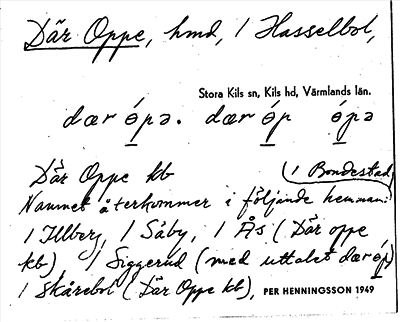 Där Oppe, hmd, / Hasselbol,
Stora Kils sn, Kils hd, Värmlands län.
dær ópə. dær óp ópə
Där Oppe kb (/ Bondestad
Namnet återkommer i följande hemman:
/ Illberg, / Såby, / Ås (Där oppe
kb), / Siggerud (med uttalet dær óp)
/ Skårebol (Där Oppe kb), PER HENNINGSSON 1949